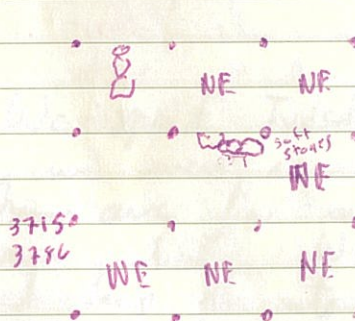 NE NE
soft
stones
NE
3715
378
NE NE NE